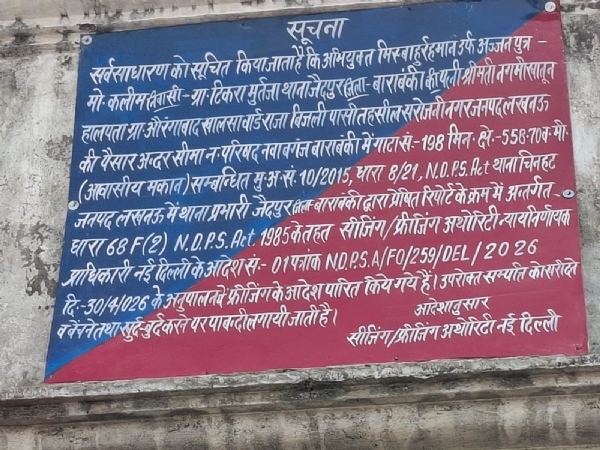 सूचना
सर्वसाधारण को सूचित किया जाता है कि अभियुक्त मिस्बाहुर्रहमान उर्फ अज्जन पुत्र -
मो० कलीम निवासी - ग्रा० टिकरा मुर्तजा थाना जैदपुर जिला - बाराबंकी की पत्नी श्रीमती नगमी खातून
हालपता ग्रा० औरंगाबाद खालसा वार्ड राजा बिजली पासी तहसील सरोजनी नगर जनपद लखनऊ
की पैसार अन्दर सीमा न० परिषद नवाबगंज बाराबंकी में गाटा सं०-198 मिन० क्षे०-558.70 व० मी०
(आवासीय मकान) सम्बन्धित मु० अ० सं० 10/2015, धारा 8/21, N.D.P.S. Act थाना चिनहट
जनपद लखनऊ में थाना प्रभारी जैदपुर जिला- बाराबंकी द्वारा प्रेषित रिपोर्ट के क्रम में अन्तर्गत -
धारा 68F(2) N.D.P.S. Act 1985 के तहत सीजिंग/फ्रीजिंग अथोरिटी न्यायनिर्णायक
प्राधिकारी नई दिल्ली के आदेश सं०- 01 पत्रांक N.D.P.S.A/FO/259/DEL/2026
दि०-30/4/026 के अनुपालन में फ्रीजिंग के आदेश पारित किये गये हैं। उपरोक्त सम्पत्ति को खरीदने
व बेचने तथा सुर्द-बुर्द करने पर पाबन्दी लगायी जाती है।
आदेशानुसार
सीजिंग/फ्रीजिंग अथोरिटी नई दिल्ली